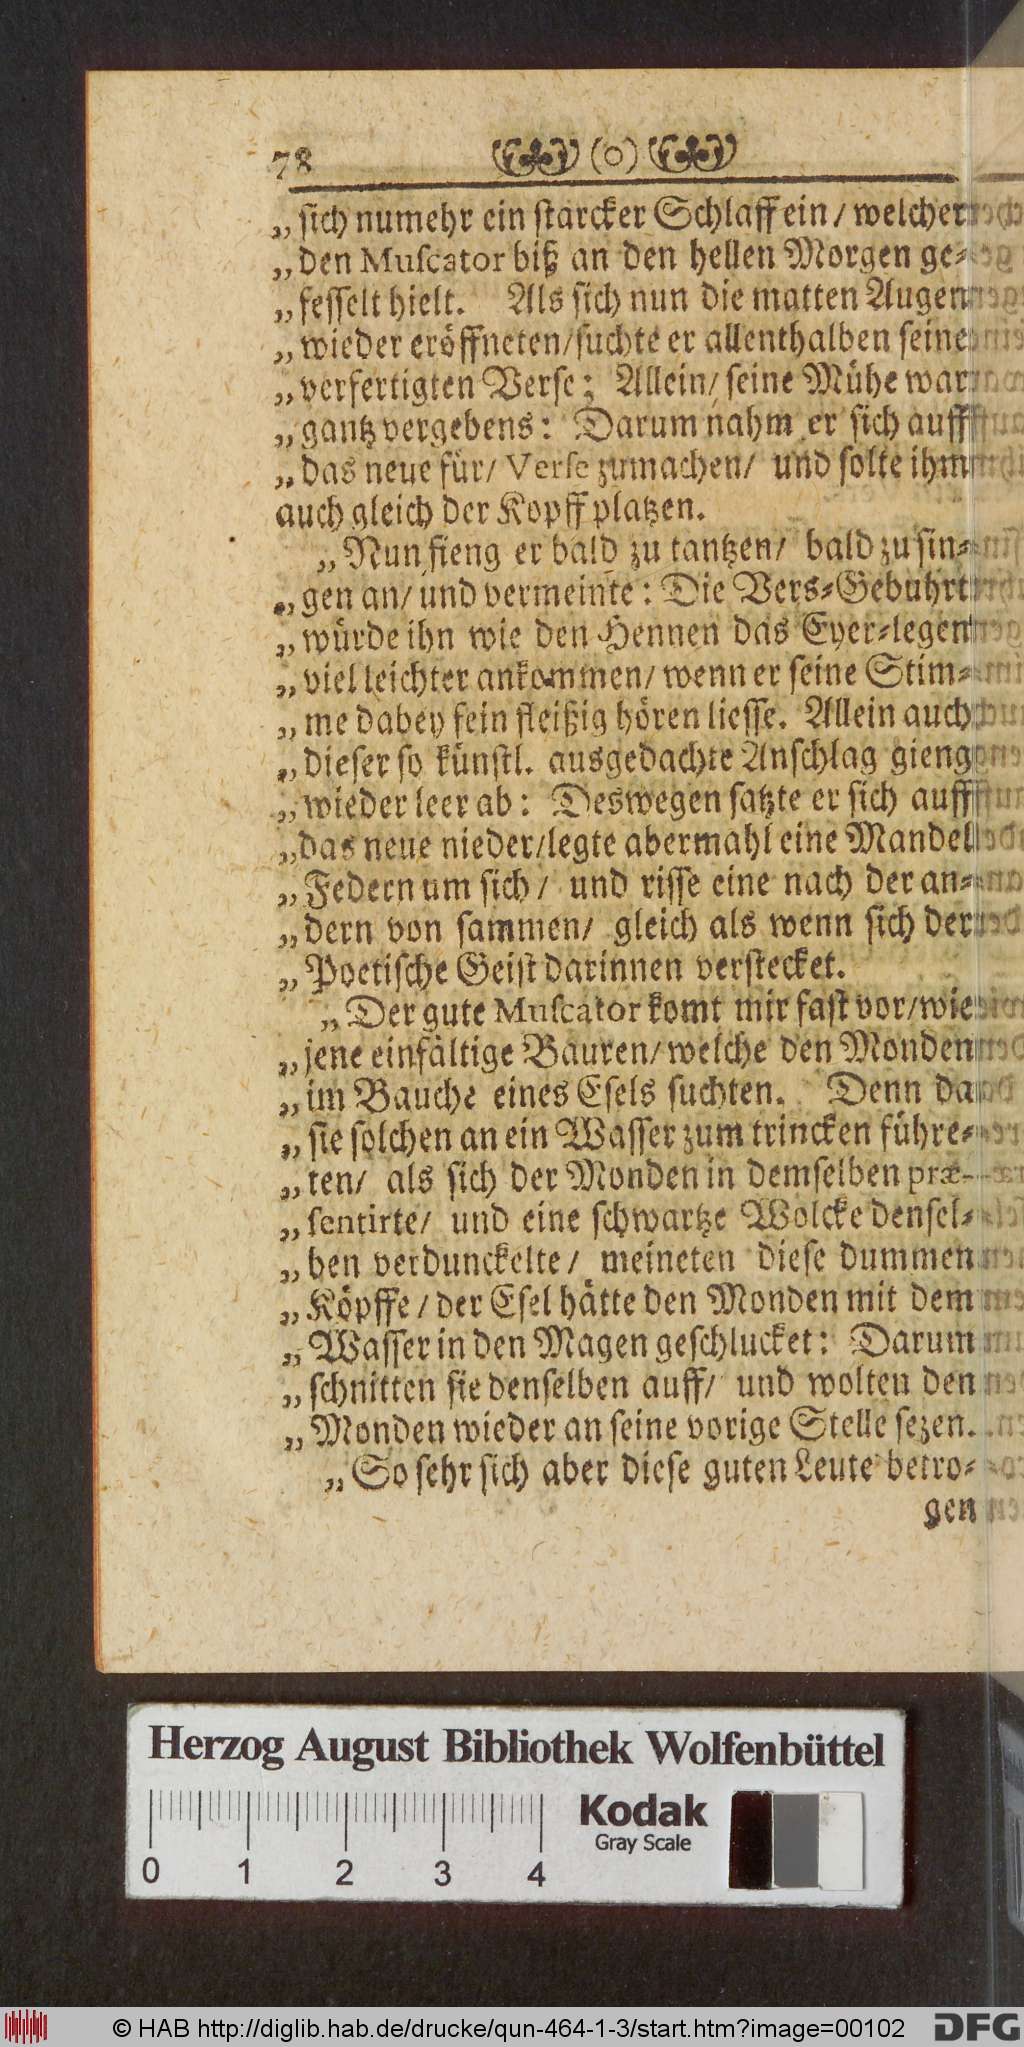 78 (o)
„sich numehr ein starcker Schlaff ein / welcher
„den Muscator biß an den hellen Morgen ge-
„fesselt hielt. Als sich nun die matten Augen
„wieder eröffneten/suchte er allenthalben seine
„verfertigten Verse; Allein/ seine Mühe war
„gantz vergebens: Darum nahm er sich auff
„das neue für/ Verse zumachen/ und solte ihm
auch gleich der Kopff platzen.
„Nun fieng er bald zu tantzen/ bald zu sin-
„gen an/ und vermeinte: Die Vers-Gebuhrt
„würde ihn wie den Hennen das Eyer-legen
„viel leichter ankommen/ wenn er seine Stim-
„me dabey fein fleißig hören liesse. Allein auch
„dieser so künstl. ausgedachte Anschlag gieng
„wieder leer ab: Deswegen satzte er sich auff
„das neue nieder/legte abermahl eine Mandel
„Federn um sich / und risse eine nach der an-
„dern von sammen/ gleich als wenn sich der
„Poetische Geist darinnen verstecket.
„Der gute Muscator komt mir fast vor/wie
„jene einfältige Bauren/ welche den Monden
„im Bauche eines Esels suchten. Denn da
„sie solchen an ein Wasser zum trincken führe-
„ten/ als sich der Monden in demselben præ-
„sentirte/ und eine schwartze Wolcke densel-
„ben verdunckelte / meineten diese dummen
„Köpffe / der Esel hätte den Monden mit dem
„Wasser in den Magen geschlucket: Darum
„schnitten sie denselben auff/ und wolten den
„Monden wieder an seine vorige Stelle sezen.
„So sehr sich aber diese guten Leute betro-
gen
Herzog August Bibliothek Wolfenbüttel
Kodak
Gray Scale
0 1 2 3 4
© HAB http://diglib.hab.de/drucke/qun-464-1-3/start.htm?image=00102
DFG